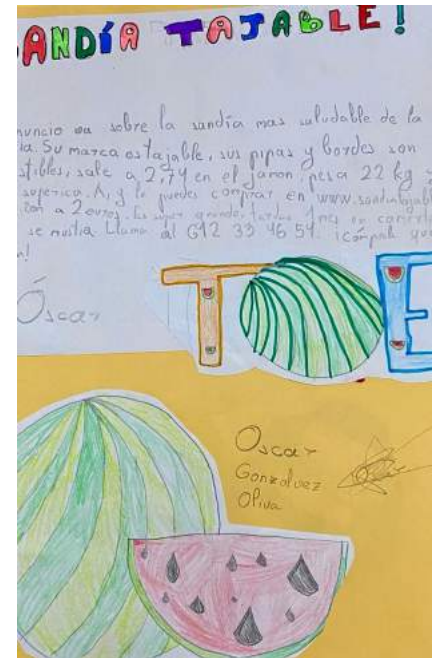 SANDÍA TAJABLE!
nuncio va sobre la sandía mas saludable de la
ia. Su marca es tajable, sus pipas y bordes son
stibles, sale a 2,74 en el jamon, pesa 22 kg y
superrica. A, y la puedes comprar en www.sandiatajabl
a 2 euros. Es super grande, tardas 1 mes en
se mustia. Llama al 612 33 46 54. ¡cómprala que
n!
Óscar
TOE
Oscar
Gonzalvez
Oliva